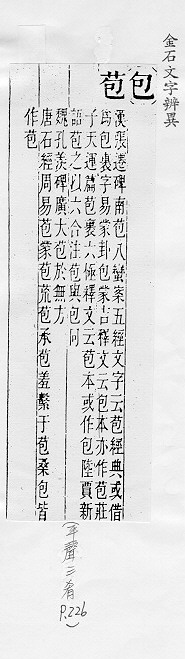 金石文字辨異
包
苞
漢張遷碑南苞八蠻案五經文字云苞經典或借
為包裹字易蒙卦包蒙吉釋文云包本亦作苞莊
子天運篇苞裹六極釋文云苞本或作包陸賈新
語苞之以六合注苞與包同
魏孔羨碑廣大苞於無方
唐石經周易苞蒙苞荒苞承苞羞繫于苞桑包皆
作苞
(平聲三肴 P.226)